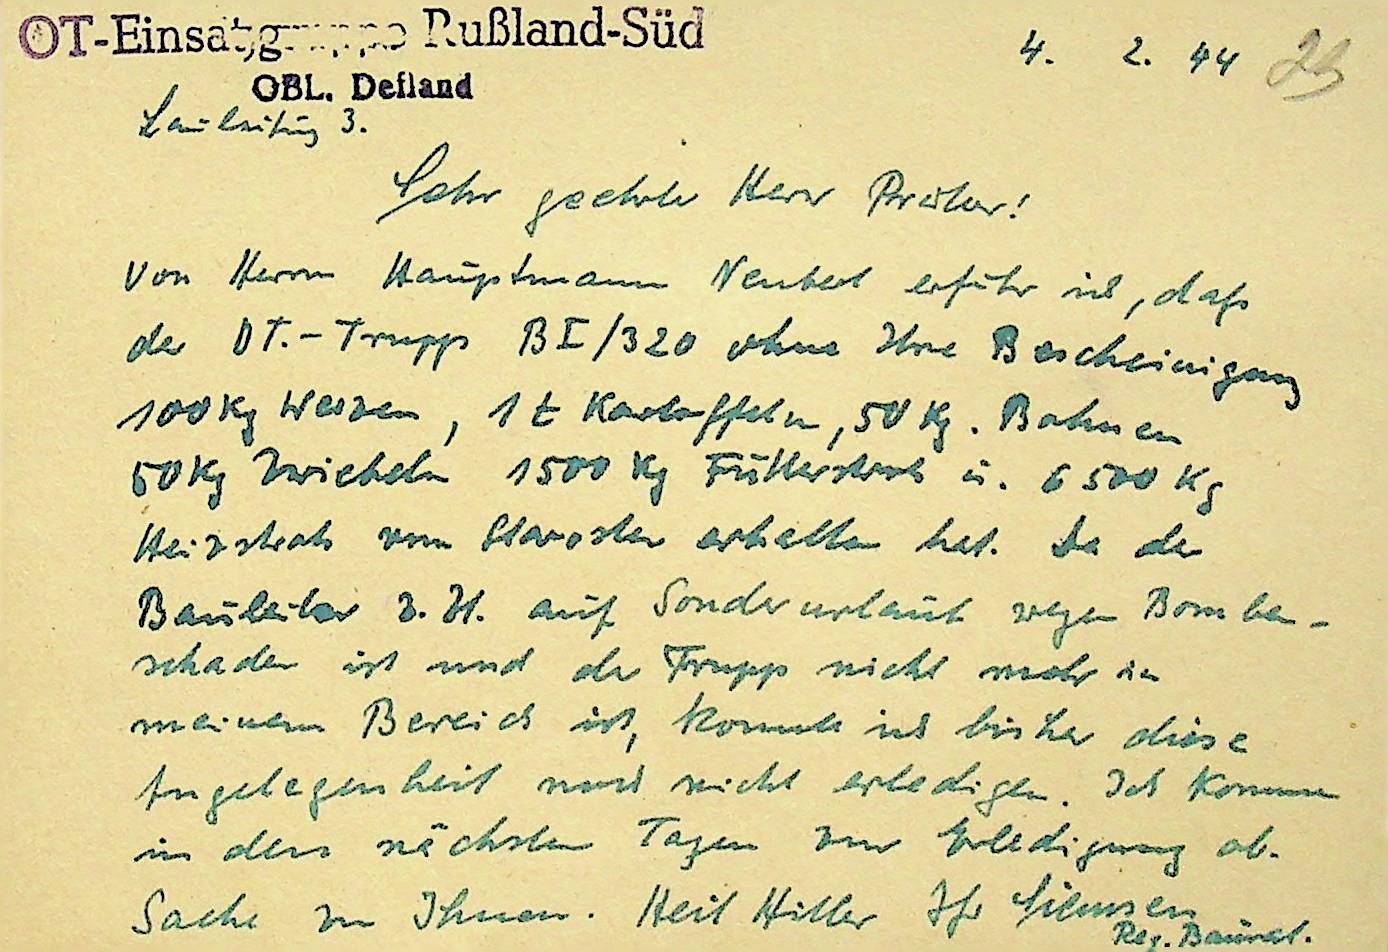 OT-Einsatzgruppe Rußland-Süd
OBL. Defland
4. 2. 44
Bauleitung 3.
Sehr geehrter Herr
Von Herrn Hauptmann erfuhr ich, daß
der OT.-Trupp BI/320 ohne Ihre Bescheinigung
100 kg Weizen, 1 t Kartoffeln, 50 kg. Bohnen
50 kg Zwiebeln 1500 kg Futterstroh u. 6500 kg
Heizstroh vom Starosten erhalten hat. Da der
Bauleiter z. Zt. auf Sonderurlaub wegen Bomben-
schaden ist und der Trupp nicht mehr in
meinem Bereich ist, konnte ich bisher diese
Angelegenheit noch nicht erledigen. Ich komme
in den nächsten Tagen zur Erledigung ob.
Sache zu Ihnen. Heil Hitler Ihr
Reg. Baurat.